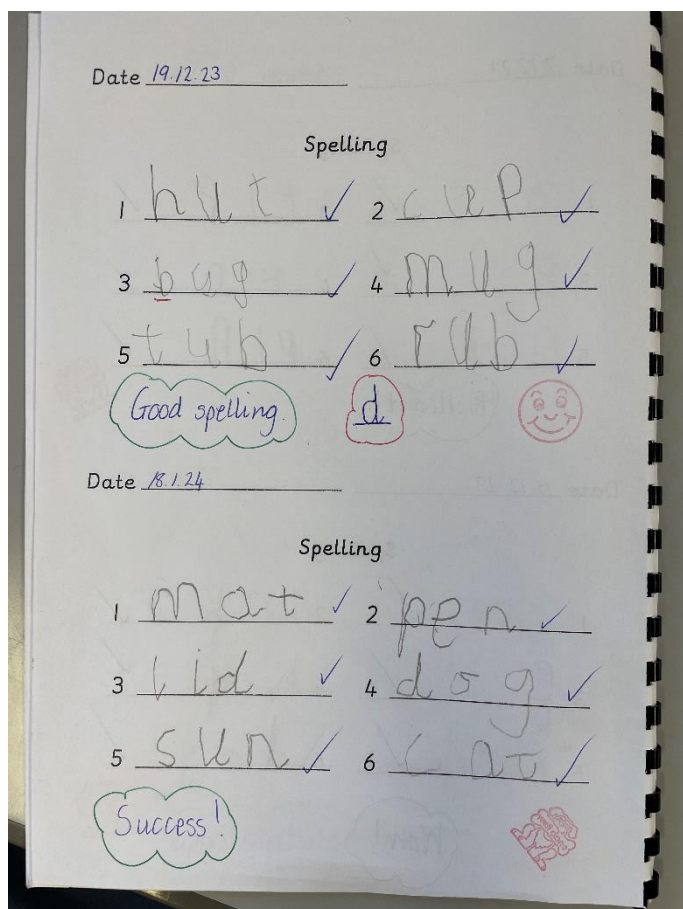 Date 19.12.23
Spelling
1 hut ✓ 2 cup ✓
3 bug ✓ 4 mug ✓
5 tub ✓ 6 rub ✓
Good spelling. d
Date 18.1.24
Spelling
1 mat ✓ 2 pen ✓
3 lid ✓ 4 dog ✓
5 sun ✓ 6 cat ✓
Success!